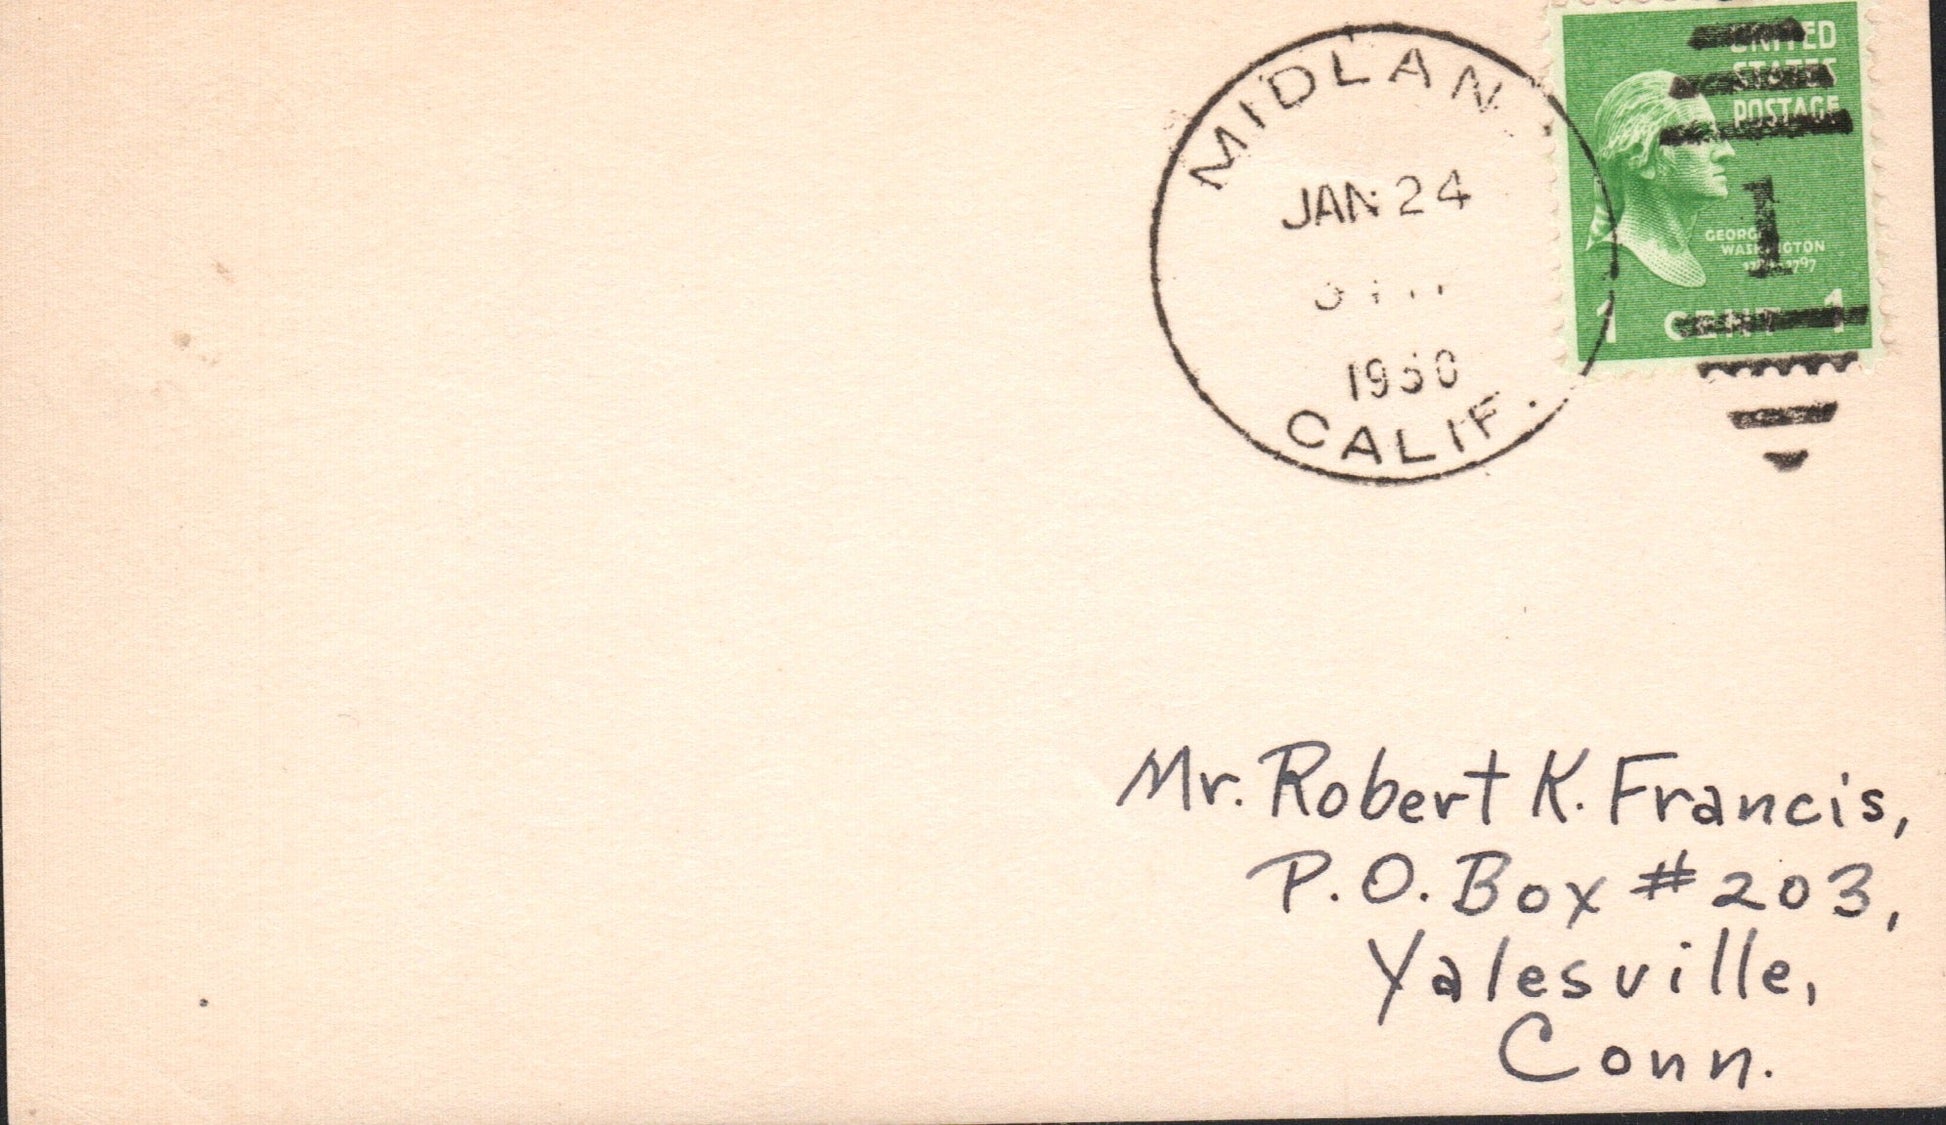 MIDLAN
JAN 24
1950
CALIF.
UNITED
STATES
POSTAGE
1
GEORGE
WASHINGTON
1 CENT 1
Mr. Robert K. Francis,
P.O. Box #203,
Yalesville,
Conn.